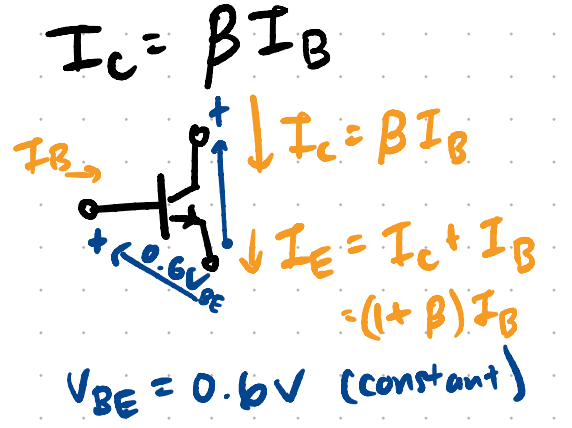 I_C = βI_B
+
I_B →
↓ I_C = βI_B
+
0.6V_BE
↓ I_E = I_C + I_B
= (1 + β) I_B
V_BE = 0.6V (constant)